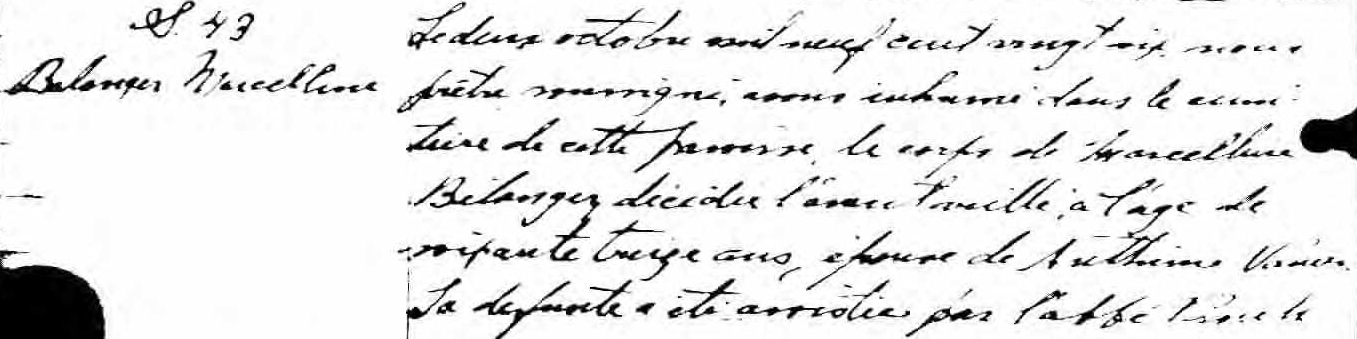 S. 43
Belanger Marcelline
Le deux octobre mil neuf cent vingt six, nous
prêtre soussigné, avons inhumé dans le cime-
tière de cette paroisse, le corps de Marcelline
Bélanger, décédée l'avant veille, à l'âge de
soixante treize ans, épouse de Anthime
La defunte a été assistée par l'abbé